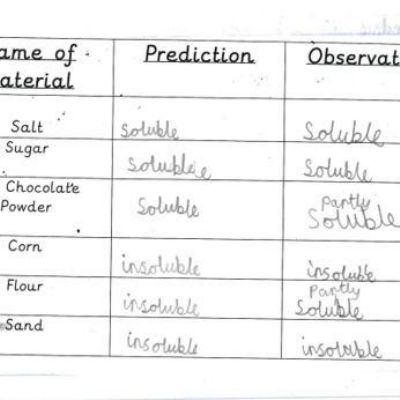 ame of Prediction Observat
aterial
Salt soluble Soluble
Sugar solublee Soluble
Chocolate partly
Powder Soluble Soluble
Corn insoluble insoluble
Flour insoluble Partly
Soluble
Sand insoluble insoluble